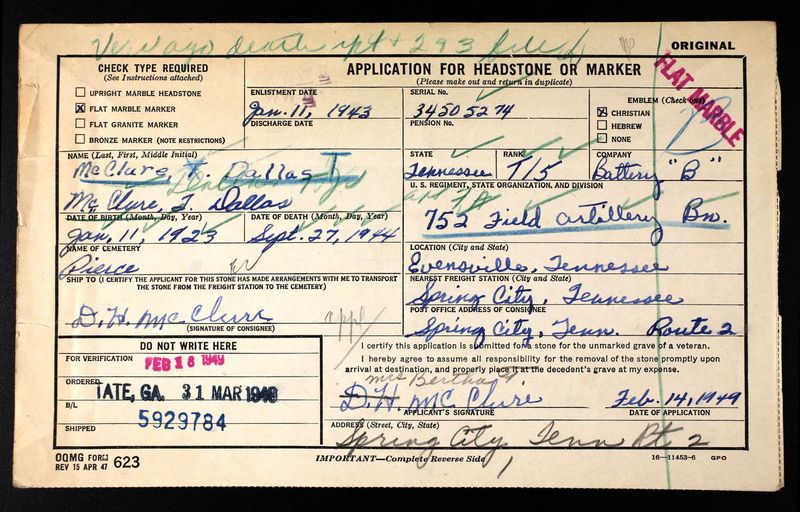 death rpt + 293 filed
ORIGINAL
CHECK TYPE REQUIRED
(See Instructions attached)
UPRIGHT MARBLE HEADSTONE
X FLAT MARBLE MARKER
FLAT GRANITE MARKER
BRONZE MARKER (NOTE RESTRICTIONS)
ENLISTMENT DATE
Jan. 11, 1943
DISCHARGE DATE
APPLICATION FOR HEADSTONE OR MARKER
(Please make out and return in duplicate)
SERIAL No.
34505274
PENSION No.
EMBLEM (Check one)
X CHRISTIAN
HEBREW
NONE
FLAT MARBLE
NAME (Last, First, Middle Initial)
McClure, T. Dallas
Mc Clure, J. Dallas
STATE
Tennessee
RANK
T/5
COMPANY
Battery "B"
U. S. REGIMENT, STATE ORGANIZATION, AND DIVISION
752 Field artillery Bn.
DATE OF BIRTH (Month, Day, Year)
Jan, 11, 1923
DATE OF DEATH (Month, Day, Year)
Sept. 27, 1944
NAME OF CEMETERY
Pierce
LOCATION (City and State)
Evensville, Tennessee
SHIP TO (I CERTIFY THE APPLICANT FOR THIS STONE HAS MADE ARRANGEMENTS WITH ME TO TRANSPORT
THE STONE FROM THE FREIGHT STATION TO THE CEMETERY)
D. H. Mc Clure
(SIGNATURE OF CONSIGNEE)
appl
NEAREST FREIGHT STATION (City and State)
Spring City, Tennessee
POST OFFICE ADDRESS OF CONSIGNEE
Spring City, Tenn. Route 2
DO NOT WRITE HERE
FOR VERIFICATION
FEB 18 1949
ORDERED
TATE, GA. 31 MAR 1949
B/L
5929784
SHIPPED
I certify this application is submitted for a stone for the unmarked grave of a veteran.
I hereby agree to assume all responsibility for the removal of the stone promptly upon
arrival at destination, and properly place it at the decedent's grave at my expense.
Mrs Bertha
D. H. Mc Clure
Feb. 14, 1949
APPLICANT'S SIGNATURE
DATE OF APPLICATION
ADDRESS (Street, City, State)
Spring City, Tenn Rt 2
OQMG FORM
REV 15 APR 47 623
IMPORTANT—Complete Reverse Side
16—11453-6 GPO